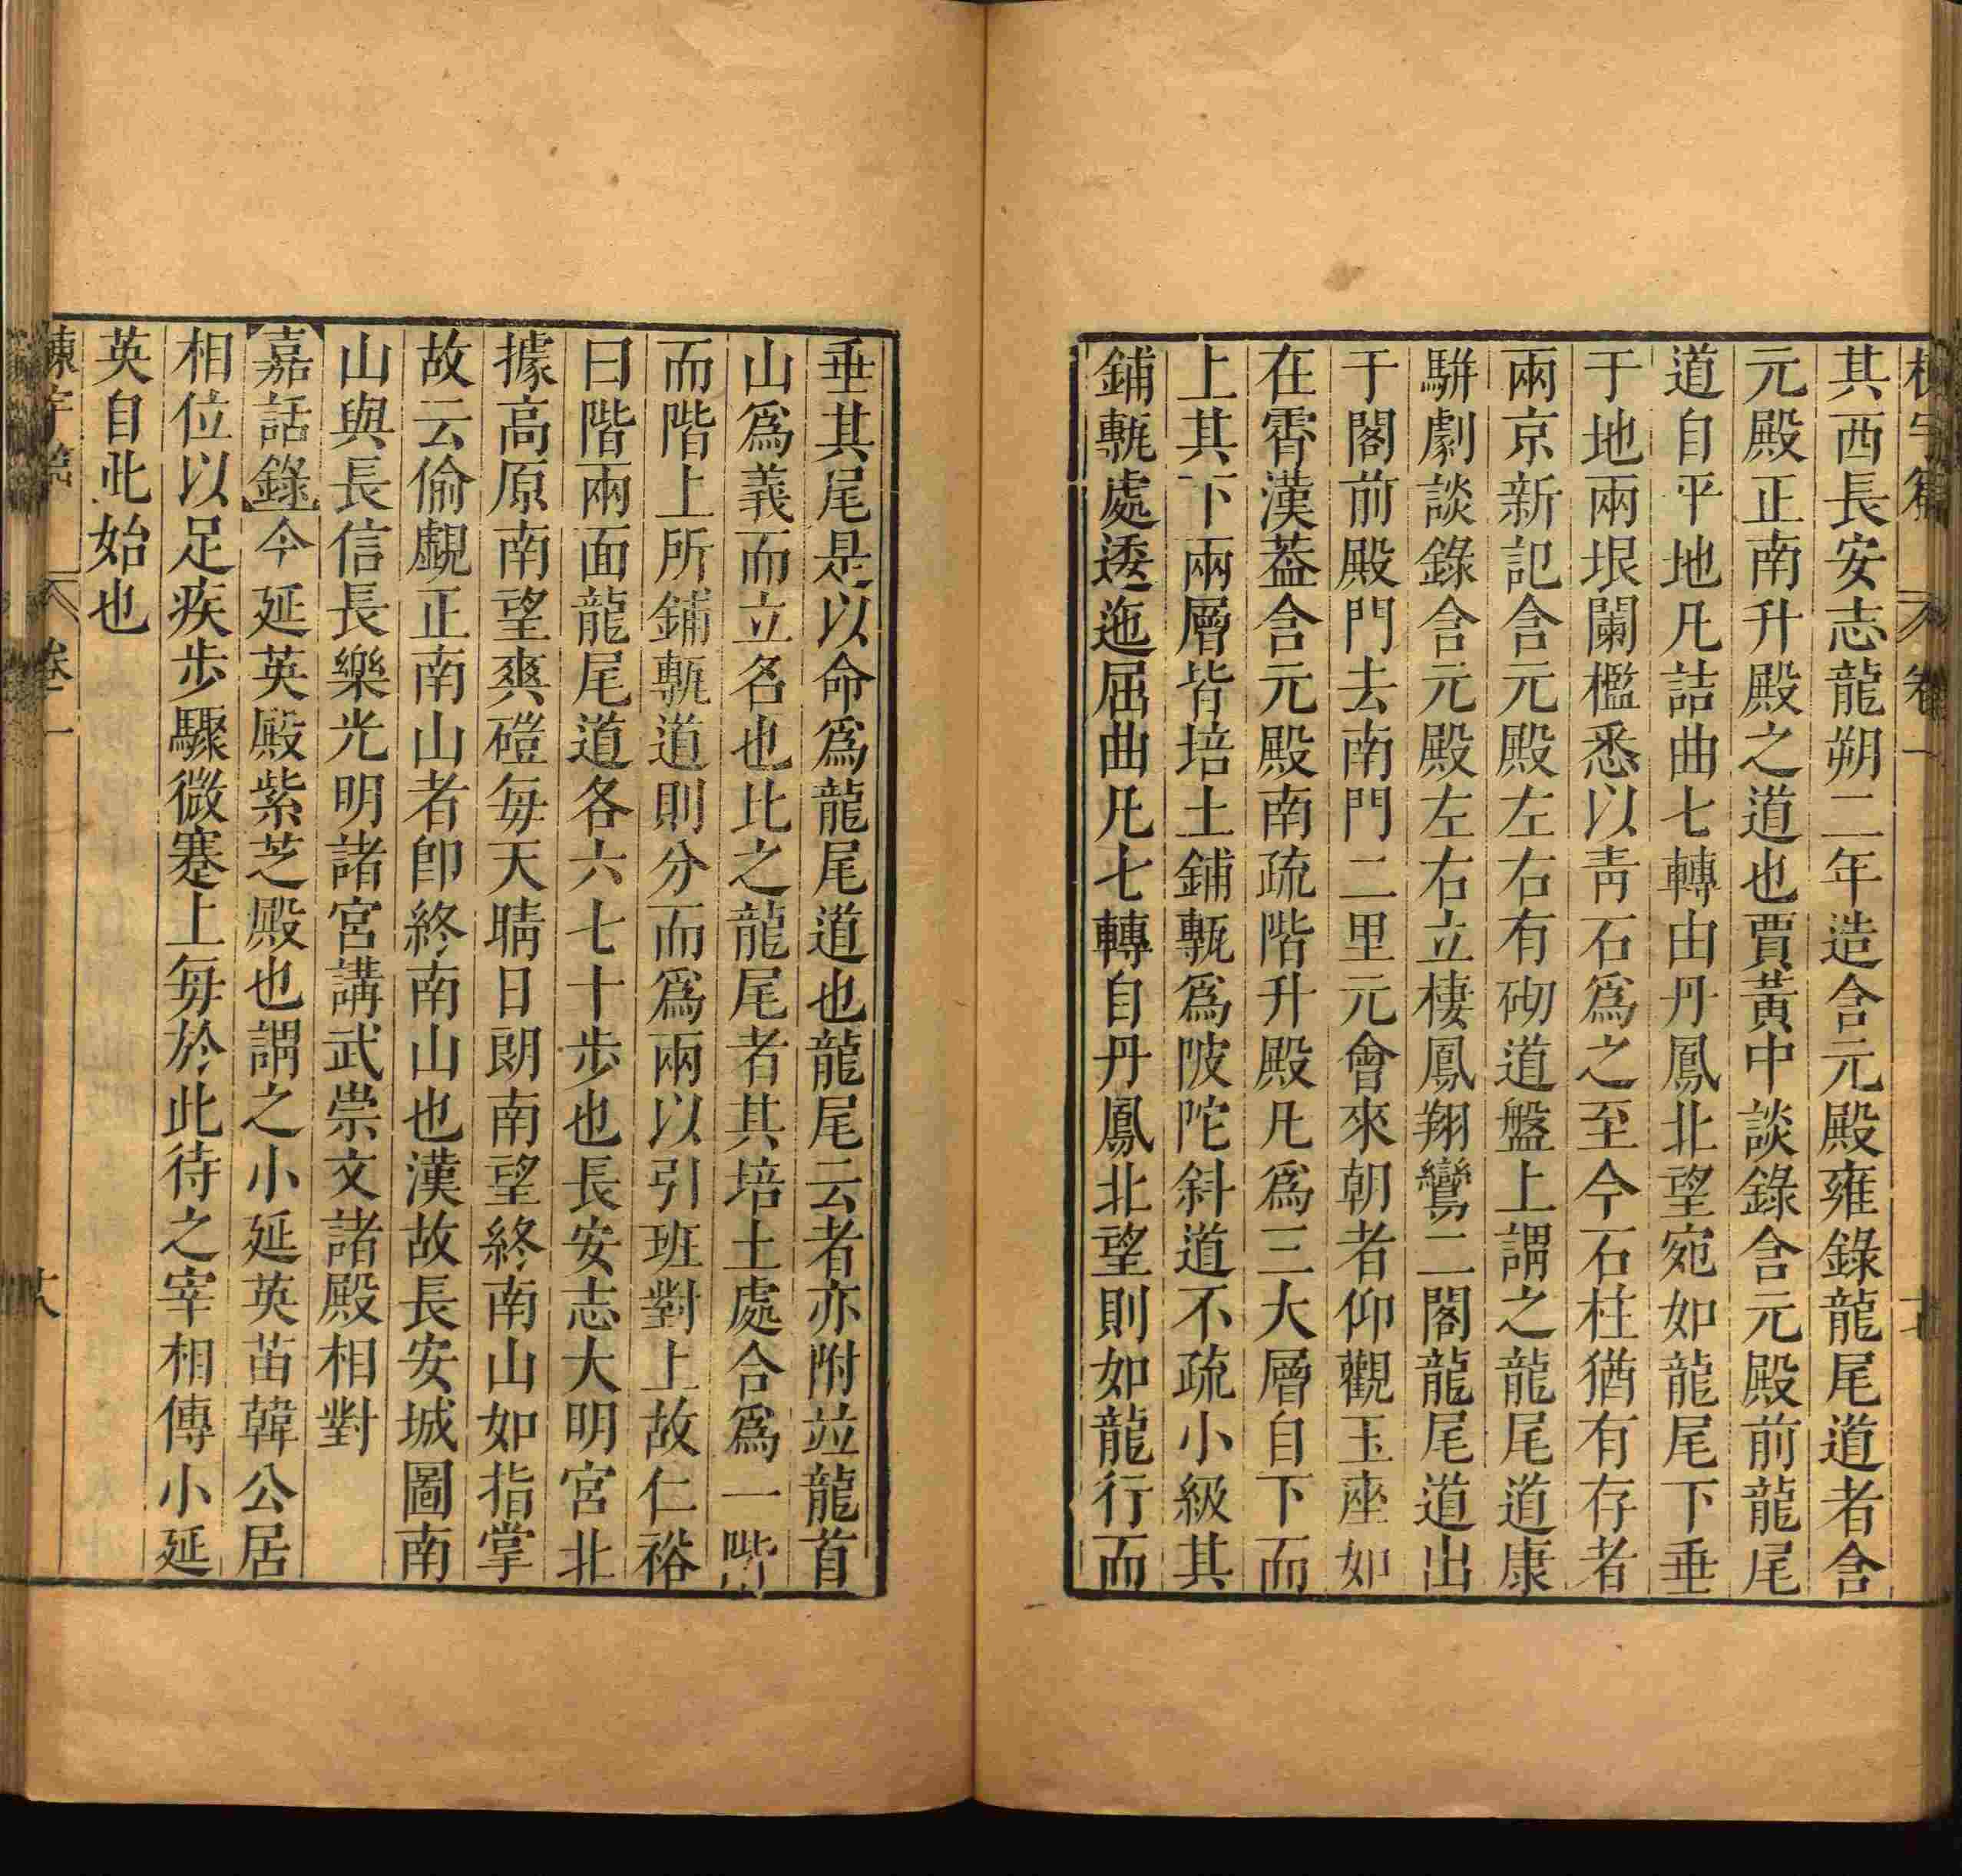 其西長安志龍朔二年造含元殿雍錄龍尾道者含
元殿正南升殿之道也賈黃中談錄含元殿前龍尾
道自平地凡詰曲七轉由丹鳳北望宛如龍尾下垂
于地兩垠闌檻悉以靑石爲之至今石柱猶有存者
兩京新記含元殿左右有砌道盤上謂之龍尾道康
騈劇談錄含元殿左右立棲鳳翔鸞二閣龍尾道出
于閣前殿門去南門二里元會來朝者仰觀玉座如
在霄漢葢含元殿南疏階升殿凡爲三大層自下而
上其下兩層皆培土鋪甎爲陂陀斜道不疏小級其
鋪甎處逶迤屈曲凡七轉自丹鳳北望則如龍行而
垂其尾是以命爲龍尾道也龍尾云者亦附竝龍首
山爲義而立名也比之龍尾者其培土處合爲一階
而階上所鋪甎道則分而爲兩以引班對上故仁裕
曰階兩面龍尾道各六七十步也長安志大明宮北
據高原南望爽磴每天晴日朗南望終南山如指掌
故云偷覷正南山者卽終南山也漢故長安城圖南
山與長信長樂光明諸宮講武崇文諸殿相對
嘉話錄今延英殿紫芝殿也謂之小延英苗韓公居
相位以足疾步驟微蹇上每於此待之宰相傳小延
英自此始也
卷一